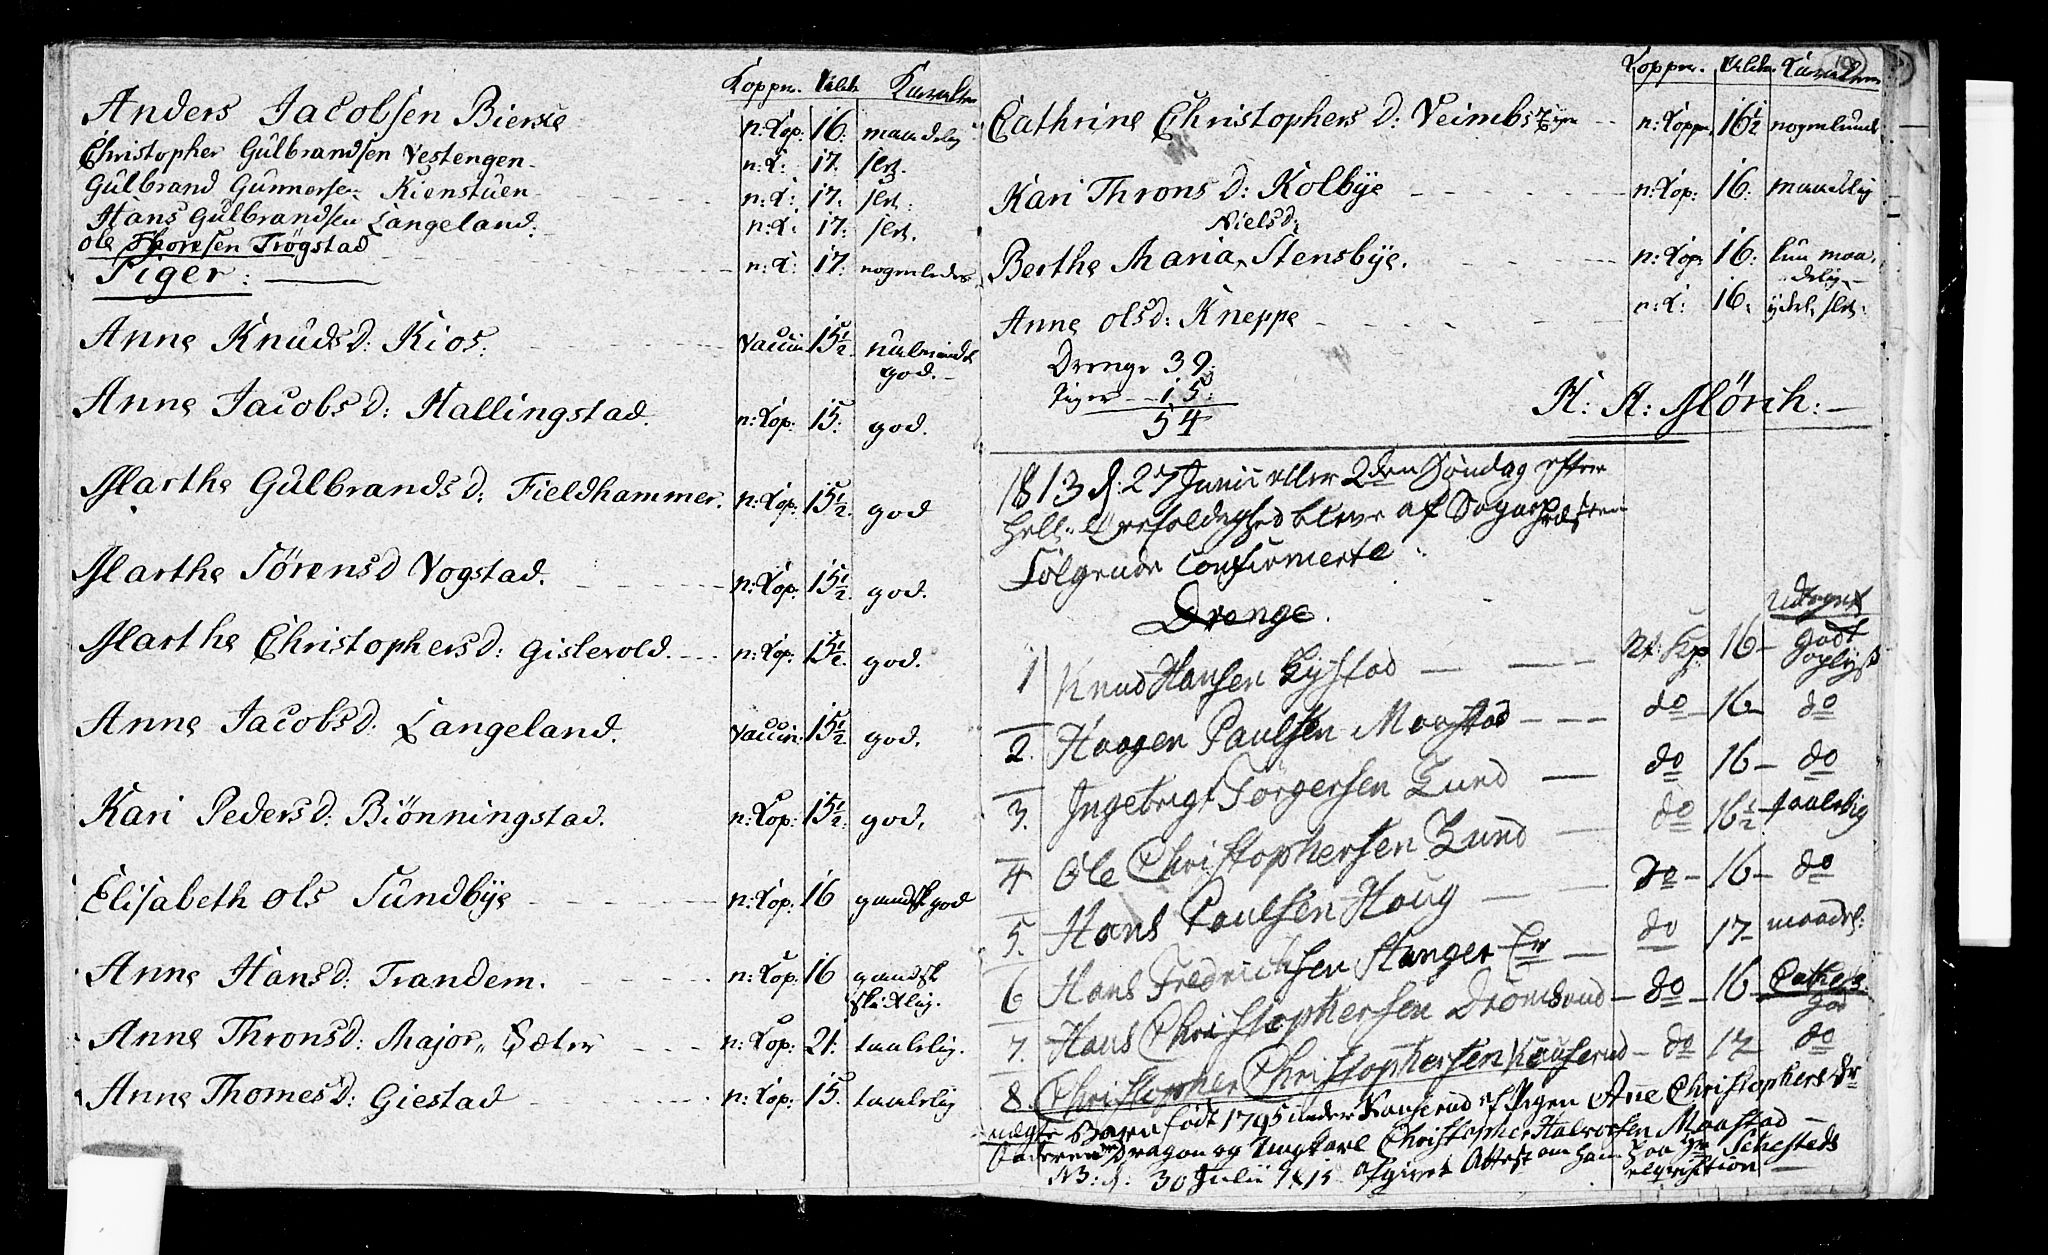 Kopper. Alder Karakter
Anders Jacobsen Bierke n: Kop: 16. maadelig
Christopher Gülbrandsen Vestengen n: K: 17. slet.
Gülbrand Gunnersen Kienstuen n: K: 17. slet:
Hans Gülbrandsen Langeland. n: K: 17: slet.
Ole Thoresen Trögstad n: K: 17. nogenledes
Piger:
Anne Knudsd: Kios. Vaccin 15½
god.
Anne Jacobsd: Hallingstad. n: Kop: 15. god.
Marthe Gülbrandsd: Fieldhammer. n: Kop: 15½ god
Marthe Sörensd Vogstad. n: Kop: 15½ god.
Marthe Christophersd: Gislevold. n: Kop: 15½ god.
Anne Jacobsd: Langeland. Vaccin: 15½ god.
Kari Pedersd: Biönningstad. n: Kop: 15½ god.
Elisabeth Ols Sundbye n: Kop: 16 gandske god
Anne Hansd: Trandem. n: Kop: 16 gandsk
skikkelig.
Anne Thronsd: Major Sæter n: Kop: 21. taalelig.
Anne Thomesd: Giestad n: Kop: 15. taalelig
Kopper. Alder Karakter
Cathrine Christophers D: Veimb n: Kopper 16½ nogenlunde
Kari Throns D: Kolbye n: Kop: 16. maadelig
Nielsd:
Berthe Maria Stensbye. n: Kop: 16. kun maa-
delig
Anne Olsd: Kneppe n: K: 16. ydel. slet.
Drenge 39.
Piger 15.
54
H: A: Mörch:
1813 d: 27 Junii eller 2den Söndag efter
Hell: Trefoldighed bleve af Sognepræsten
Fölgende Confirmerte
Drenge.
Udvgnet
1 Knud Hansen Kystad Nt: Kp: 16 godt
oplyst
2. Haagen Paulsen Maastad do 16 do
3. Ingebrigt Torgersen Lund do 16 do
4 Ole Christophersen Lund do 16½ taalelig
5. Hans Paulsen Haug do 16 do
6 Hans Fredrichsen Stanger Er do 17 maadel:
7. Hans Christophersen Dromsrud do 16
god
8 Christopher Christophersen Kauserud do 17 do
uægte Barn födt 1795 under Kauserud af Pigen Ane Christophers Dr
Faderen Dragon og Ungkarl Christopher Halvorsen Maastad
NB: d: 30 Julii 1815 afgivet Attest om ham paa Hr Schesteds
reqvisition